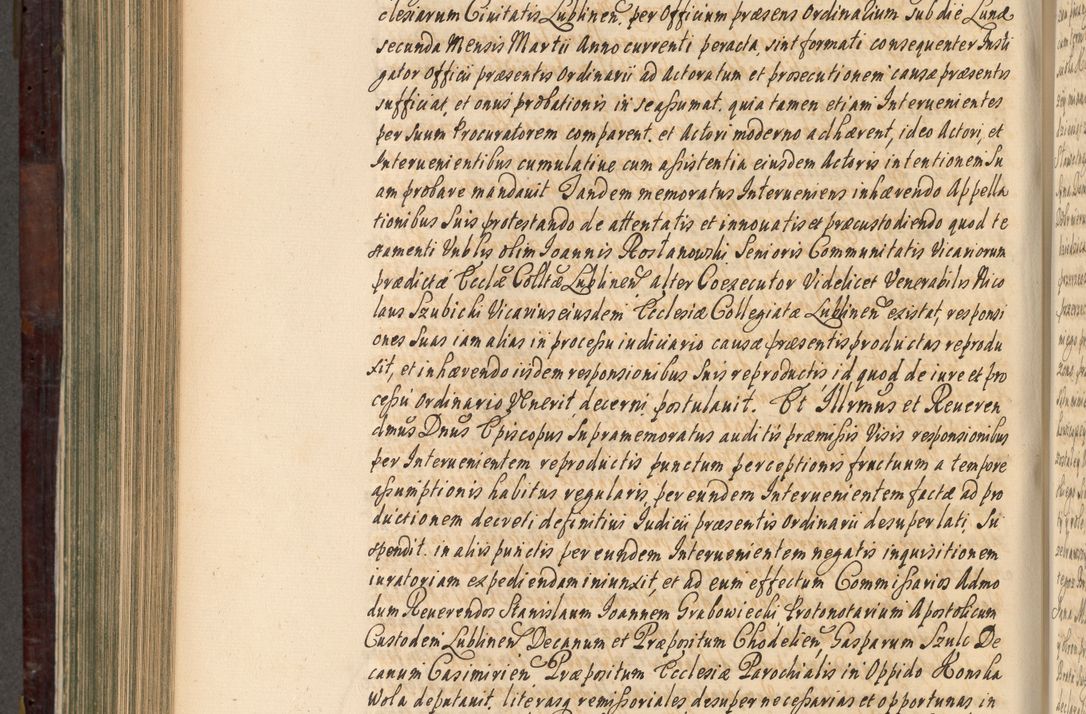 clesiarum Civitatis Lublinen. per Officium præsens Ordinarium sub die Lunæ
secunda Mensis Martii Anno currenti peracta, sint formati consequenter Insti
gator Officii præsentis Ordinarii ad Actoratum et prosecutionem causæ præsentis
sufficiat, et onus probationis in se assumat. quia tamen etiam Intervenientes
per suum Procuratorem comparent. et Actori moderno adhærent, ideo Actori, et
Intervenientibus cumulative cum assistentia eiusdem Actoris intentionem su
am probare mandavit Tandem memoratus Interveniens inhærendo Appella
tionibus suis protestando de attentatis et innovatis et præcustodiendo quod te
stamenti Vnblis olim Ioannis Rostanowski Senioris Communitatis Vicariorum
prædictæ Ecclæ Colltæ Lublinen alter Coexecutor Videlicet Venerabilis Nico
laus Szubicki Vicarius eiusdem Ecclesiæ Collegiatæ Lublinen existat, responsi
ones suas iam alias in processu iudiciario causæ præsentis productas reprodu
xit, et inhærendo iisdem responsionibus suis reproductis id quod de iure et pro
cessu Ordinario Venerit decerni postulavit. Et Illrmus et Reveren
dmus Dnus Episcopus supramemoratus auditis præmissis Visis responsionibus
per Intervenientem reproductis punctum perceptionis fructuum a tempore
assumptionis habitus regularis, per eundem Intervenientem factæ ad pro
ductionem decreti definitivi Iudicii præsentis Ordinarii desuper lati su
spendit. in aliis punctis per eundem Intervenientem negatis inquisitionem
iuratoriam expediendam iniunxit, et ad eum effectum Commissarios Admo
dum Reverendos Stanislaum Ioannem Grabowiecki Protonotarium Apostolicum
Custodem Lublinen. Decanum et Præpositum Chodelien, Gasparum Szulc De
canum Casimirien Præpositum Ecclesiæ Parochialis in Oppido Konska
Wola deputavit, literasq remissoriales desuper necessarias et opportunas in